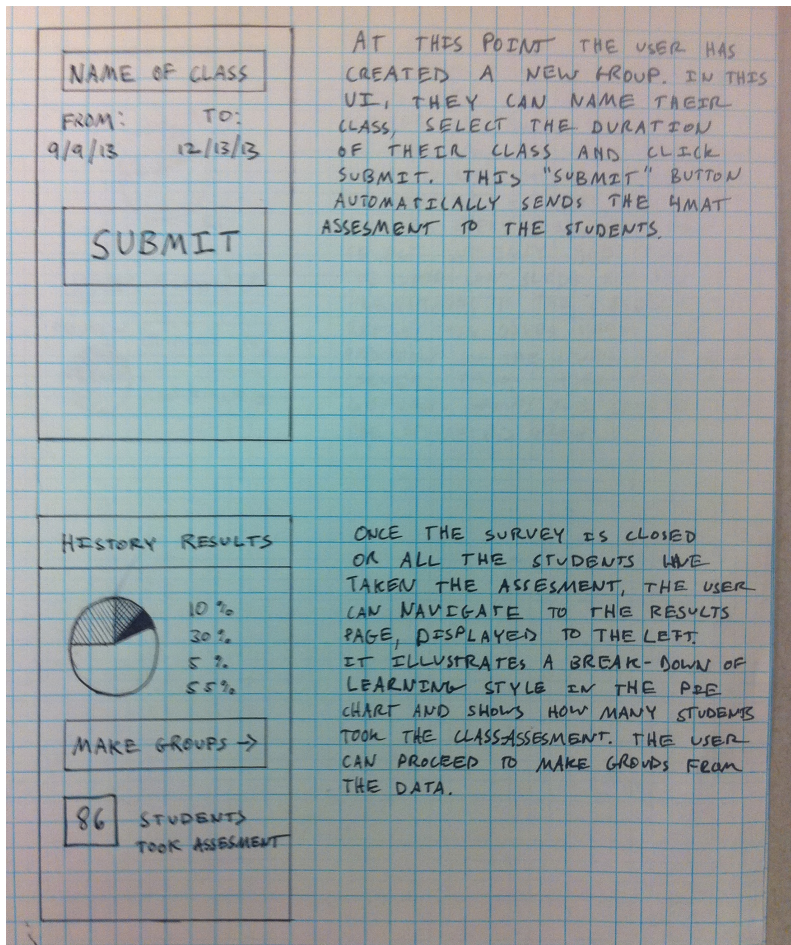 NAME OF CLASS
FROM: TO:
9/9/13 12/13/13
SUBMIT
AT THIS POINT THE USER HAS
CREATED A NEW GROUP. IN THIS
UI, THEY CAN NAME THEIR
CLASS, SELECT THE DURATION
OF THEIR CLASS AND CLICK
SUBMIT. THIS "SUBMIT" BUTTON
AUTOMATICALLY SENDS THE 4MAT
ASSESMENT TO THE STUDENTS.
HISTORY RESULTS
10%
30%
5%
55%
MAKE GROUPS →
86 STUDENTS
TOOK ASSESMENT
ONCE THE SURVEY IS CLOSED
OR ALL THE STUDENTS HAVE
TAKEN THE ASSESMENT, THE USER
CAN NAVIGATE TO THE RESULTS
PAGE, DISPLAYED TO THE LEFT.
IT ILLUSTRATES A BREAK-DOWN OF
LEARNING STYLE IN THE PIE
CHART AND SHOWS HOW MANY STUDENTS
TOOK THE CLASS ASSESMENT. THE USER
CAN PROCEED TO MAKE GROUPS FROM
THE DATA.